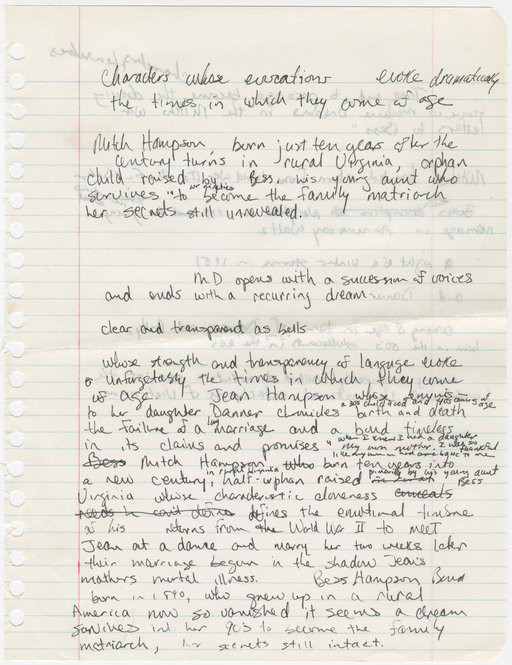 Characters whose evocations evoke dramatically
the times in which they come of age
Mitch Hampson, born just ten years after the
century turns in rural Virginia, orphan
child raised by Bess, his young aunt who
survives to her nineties to become the family matriarch
her secrets still unrevealed.
MD opens with a succession of voices
and ends with a recurring dream
clear and transparent as bells
whose strength and transparency of language evoke
unforgetably the times in which they come
of age Jean Hampson whose
to her daughter Danner chronicles birth and death
a 30s childhood and 40s coming of age
the failure of a long marriage and a bond timeless
in its claims and promises "when I knew I had a daughter
my own mother. I was so thankful
like my own had come back to me
Bess Mitch Hampson who born ten years into
a new century, half-orphan raised primarily by his young aunt
in rural Virginia Bess
Virginia whose characteristic aloneness conceals
needs he can't define defines the emotional timbre
of his returns from the World War II to meet
Jean at a dance and marry her two weeks later
their marriage begun in the shadow Jean's
mothers mortal illness. Bess Hampson Bond
born in 1890, who grew up in a rural
America now so vanished it seems a dream
survives into her 90's to become the family
matriarch, her secrets still intact.